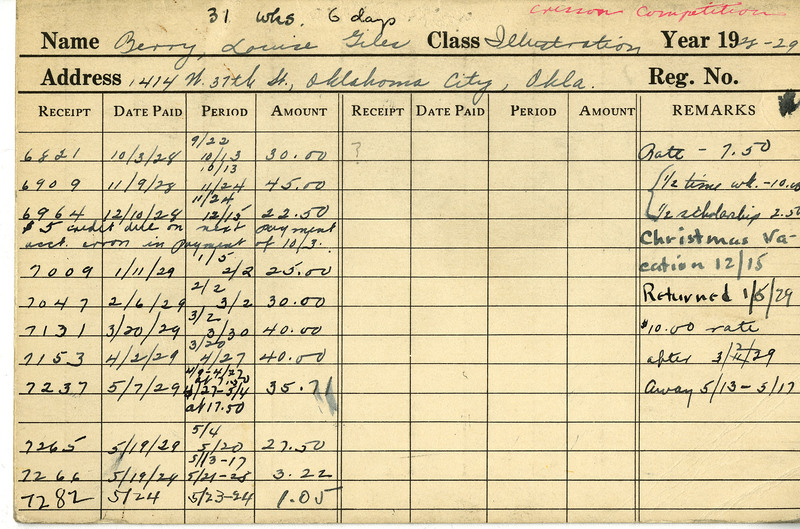 31 wks. 6 days
Cresson Competition
Name Berry, Louise Giles Class Illustration Year 1928-29
Address 1414 W. 37th St., Oklahoma City, Okla. Reg. No.
RECEIPT DATE PAID PERIOD AMOUNT RECEIPT DATE PAID PERIOD AMOUNT REMARKS
9/22
6821 10/3/28 10/13 30.00 ? Rate - 7.50
10/13
6909 11/9/28 11/24 45.00 1/2 time wk. - 10.00
11/24
6964 12/10/28 12/15 22.50 1/2 scholarship 2.50
$5 credit due on next payment
acct. error in payment of 10/3. Christmas Va-
1/5
7009 1/11/29 2/2 25.00 cation 12/15
2/2
7047 2/6/29 3/2 30.00 Returned 1/5/29
3/2
7131 3/20/29 3/30 40.00 $10.00 rate
3/30
7153 4/2/29 4/27 40.00 after 3/2/29
4/27-5/4
7237 5/7/29 35.71 Away 5/13-5/17
at 17.50
5/4
7265 5/19/29 5/20 27.50
5/13-17
7266 5/19/29 5/21-25 3.22
7282 5/24 5/23-24 1.05